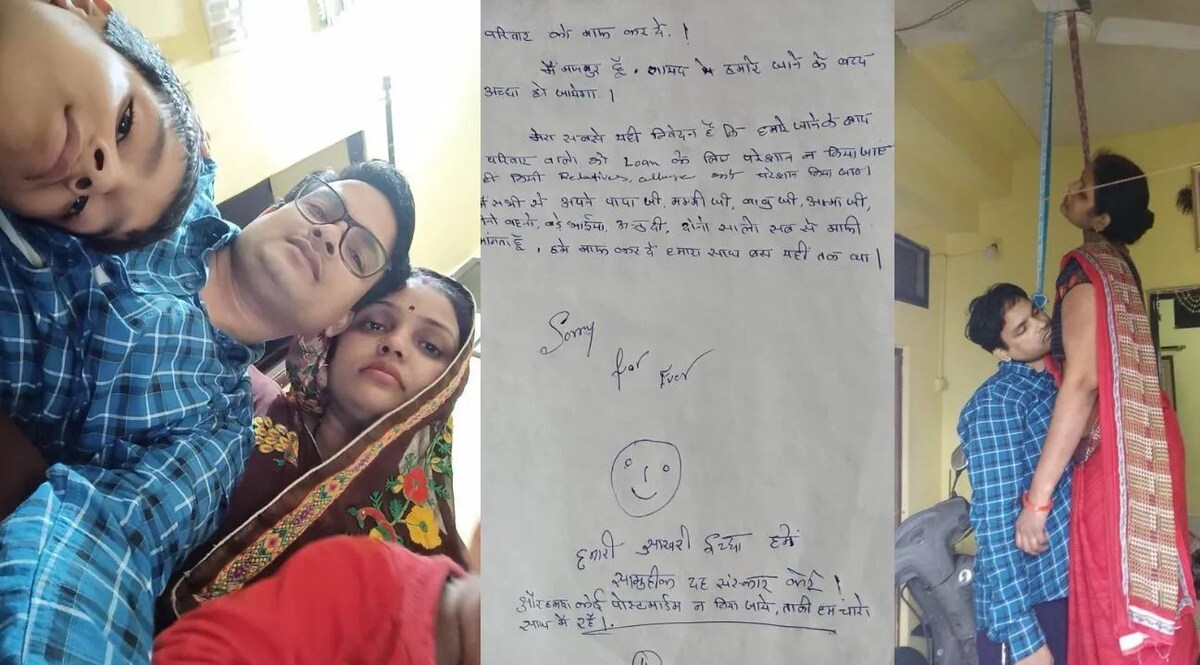 परिवार को माफ कर दें. !
मैं मजबूर हूँ. शायद हमारे जाने के बाद
अच्छा हो जायेगा ।
मेरा सबसे यही निवेदन है कि हमारे जाने के बाद
परिवार वालो को Loan के लिए परेशान न किया जाए
ही किसी Relatives, को परेशान किया जाए।
सभी से अपने पापा जी, मम्मी जी, बाबु जी, अम्मा जी,
बहनो, बड़े भाईया, दोनो सालो सब से माफी
मांगता हूँ. हमें माफ कर दें हमारा साथ बस यहीं तक था |
Sorry
for Ever
हमारी आखरी ईच्छा हमें
सामुहीक दाह संस्कार करें !
और हमारा कोई पोस्टमार्डम न किया जाये, ताकी हम चारो
साथ में रहें।.